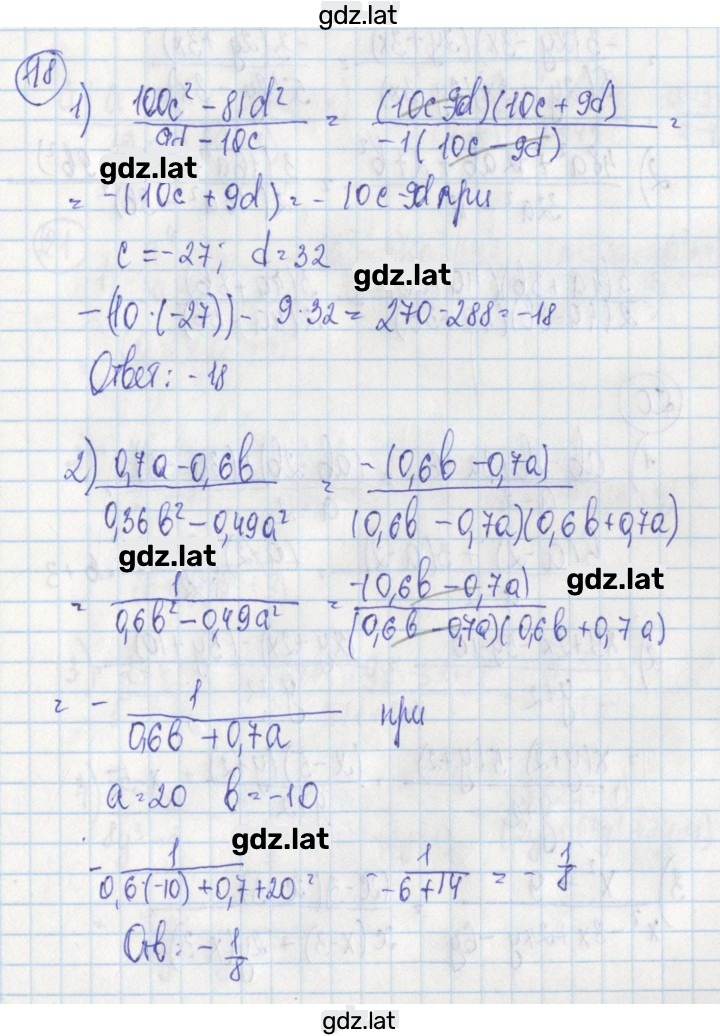 gdz.lat
118
1) (100c² - 81d²)/(9d - 10c) = ((10c - 9d)(10c + 9d))/(-1(10c - 9d)) =
gdz.lat
= -(10c + 9d) = - 10c - 9d при
c = -27; d = 32
gdz.lat
-(10·(-27)) - 9·32 = 270 - 288 = -18
Ответ: - 18
2) (0,7a - 0,6b)/(0,36b² - 0,49a²) = (-(0,6b - 0,7a))/((0,6b - 0,7a)(0,6b + 0,7a))
gdz.lat
gdz.lat
= 1/(0,6b² - 0,49a²) = (-(0,6b - 0,7a))/((0,6b - 0,7a)(0,6b + 0,7a))
= - 1/(0,6b + 0,7a) при
a = 20 b = -10
gdz.lat
- 1/(0,6(-10) + 0,7+20) = - 1/(-6 + 14) = - 1/8
Отв: - 1/8
gdz.lat